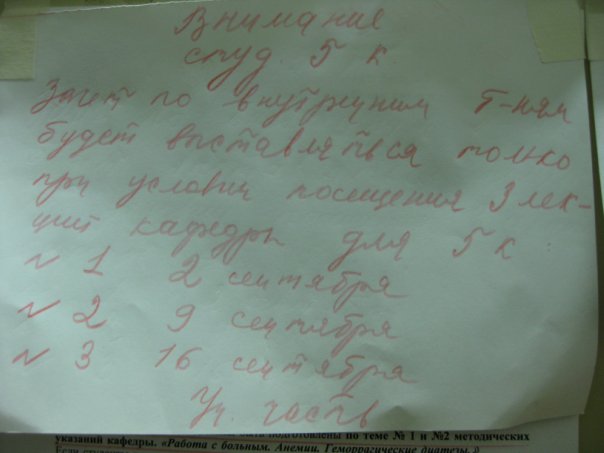 Внимание
студ. 5 к.
Зачет по внутренним б-ням
будет выставляться только
при условии посещения 3 лек-
ций кафедры для 5 к.
№ 1 2 сентября
№ 2 9 сентября
№ 3 16 сентября
Уч. часть
быть подготовлены по теме № 1 и №2 методических
указаний кафедры. «Работа с больным. Анемии. Геморрагические диатезы.»